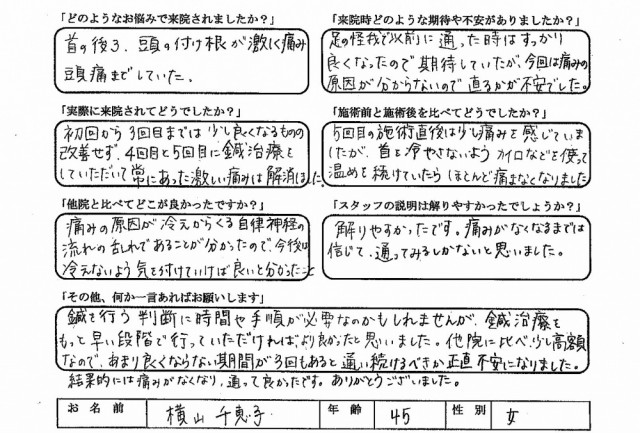 「どのようなお悩みで来院されましたか？」
首の後ろ、頭の付け根が激しく痛み
頭痛までしていた。
「来院時どのような期待や不安がありましたか？」
足の怪我で以前に通った時はすっかり
良くなったので期待していたが、今回は痛みの
原因が分からないので直るかが不安でした。
「実際に来院されてどうでしたか？」
初回から3回目までは少し良くなるものの
改善せず、4回目と5回目に鍼治療を
していただいて常にあった激しい痛みは解消しました。
「施術前と施術後を比べてどうでしたか？」
5回目の施術直後は少し痛みを感じていま
したが、首を冷やさないようカイロなどを使って
温めを続けていたらほとんど痛まなくなりました
「他院と比べてどこが良かったですか？」
痛みの原因が冷えからくる自律神経の
流れの乱れであることが分かったので今後は
冷えないよう気を付けていけば良いと分かったこと
「スタッフの説明は解りやすかったでしょうか？」
解りやすかったです。痛みがなくなるまでは
信じて、通ってみるしかないと思いました。
「その他、何か一言あればお願いします」
鍼を行う判断に時間や手順が必要なのかもしれませんが、鍼治療を
もっと早い段階で行っていただければより良かったと思いました。他院に比べ少し高額
なので、あまり良くならない期間が3回もあると通い続けるべきか正直不安になりました。
結果的には痛みがなくなり、通って良かったです。ありがとうございました。
お名前 横山 千恵子 年齢 45 性別 女